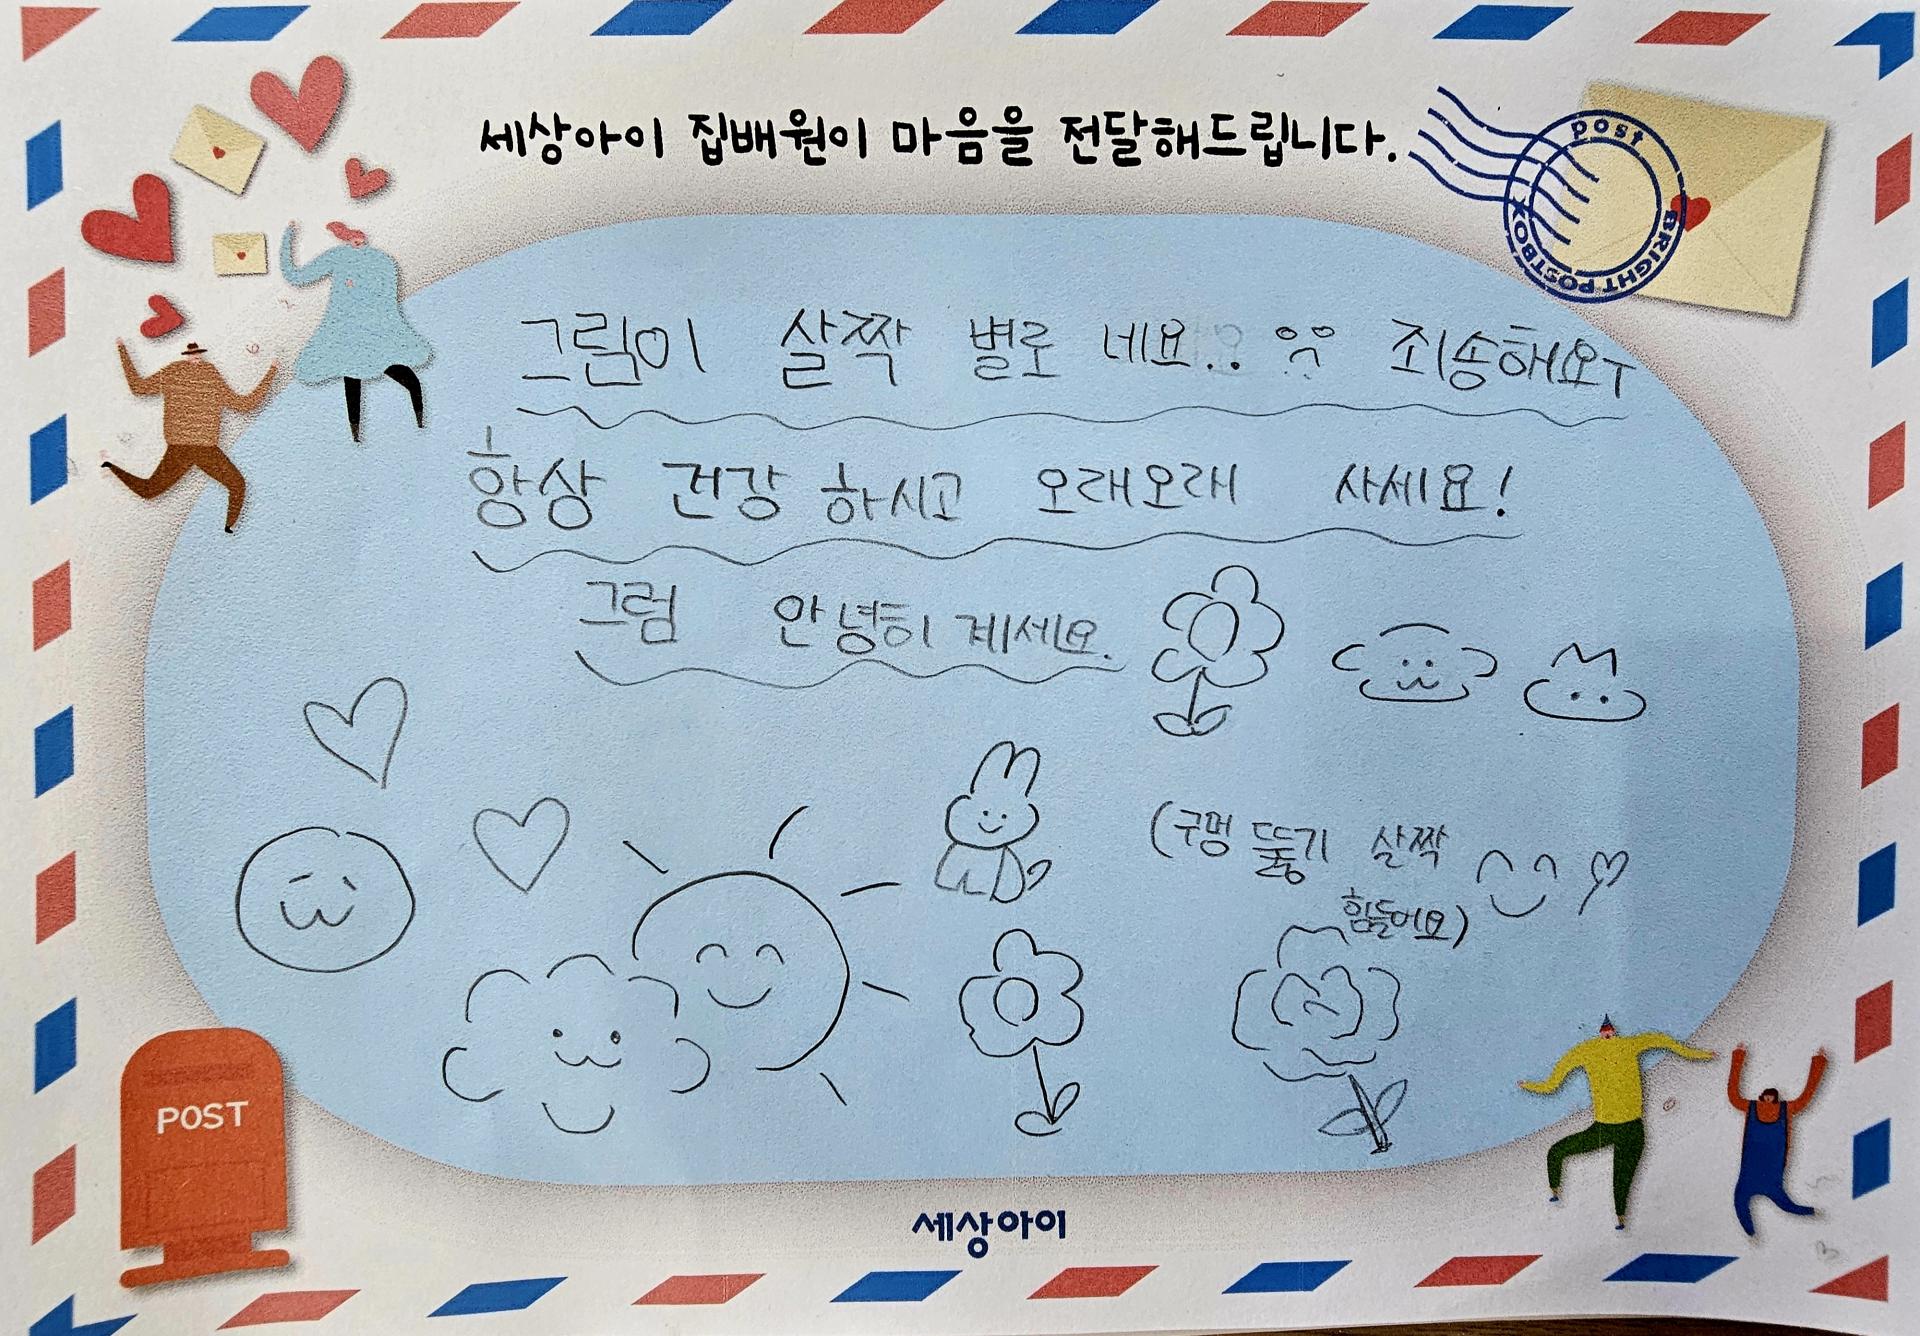 세상아이 집배원이 마음을 전달해드립니다.
post
BRIGHT POSTBOX
그림이 살짝 별로 네요.. ㅠㅠ 죄송해요ㅜ
항상 건강 하시고 오래오래 사세요!
그럼 안녕히 계세요.
(구멍 뚫기 살짝
힘들어요)
POST
세상아이